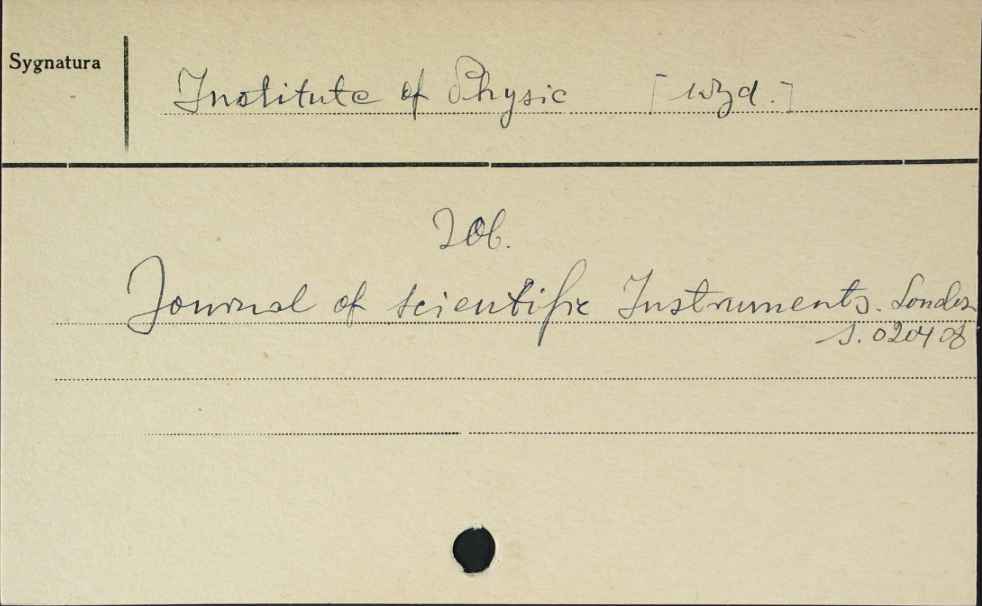 Sygnatura
Institute of Physic [wyd.]
Zob.
Journal of scientific Instruments. London
S. 020408